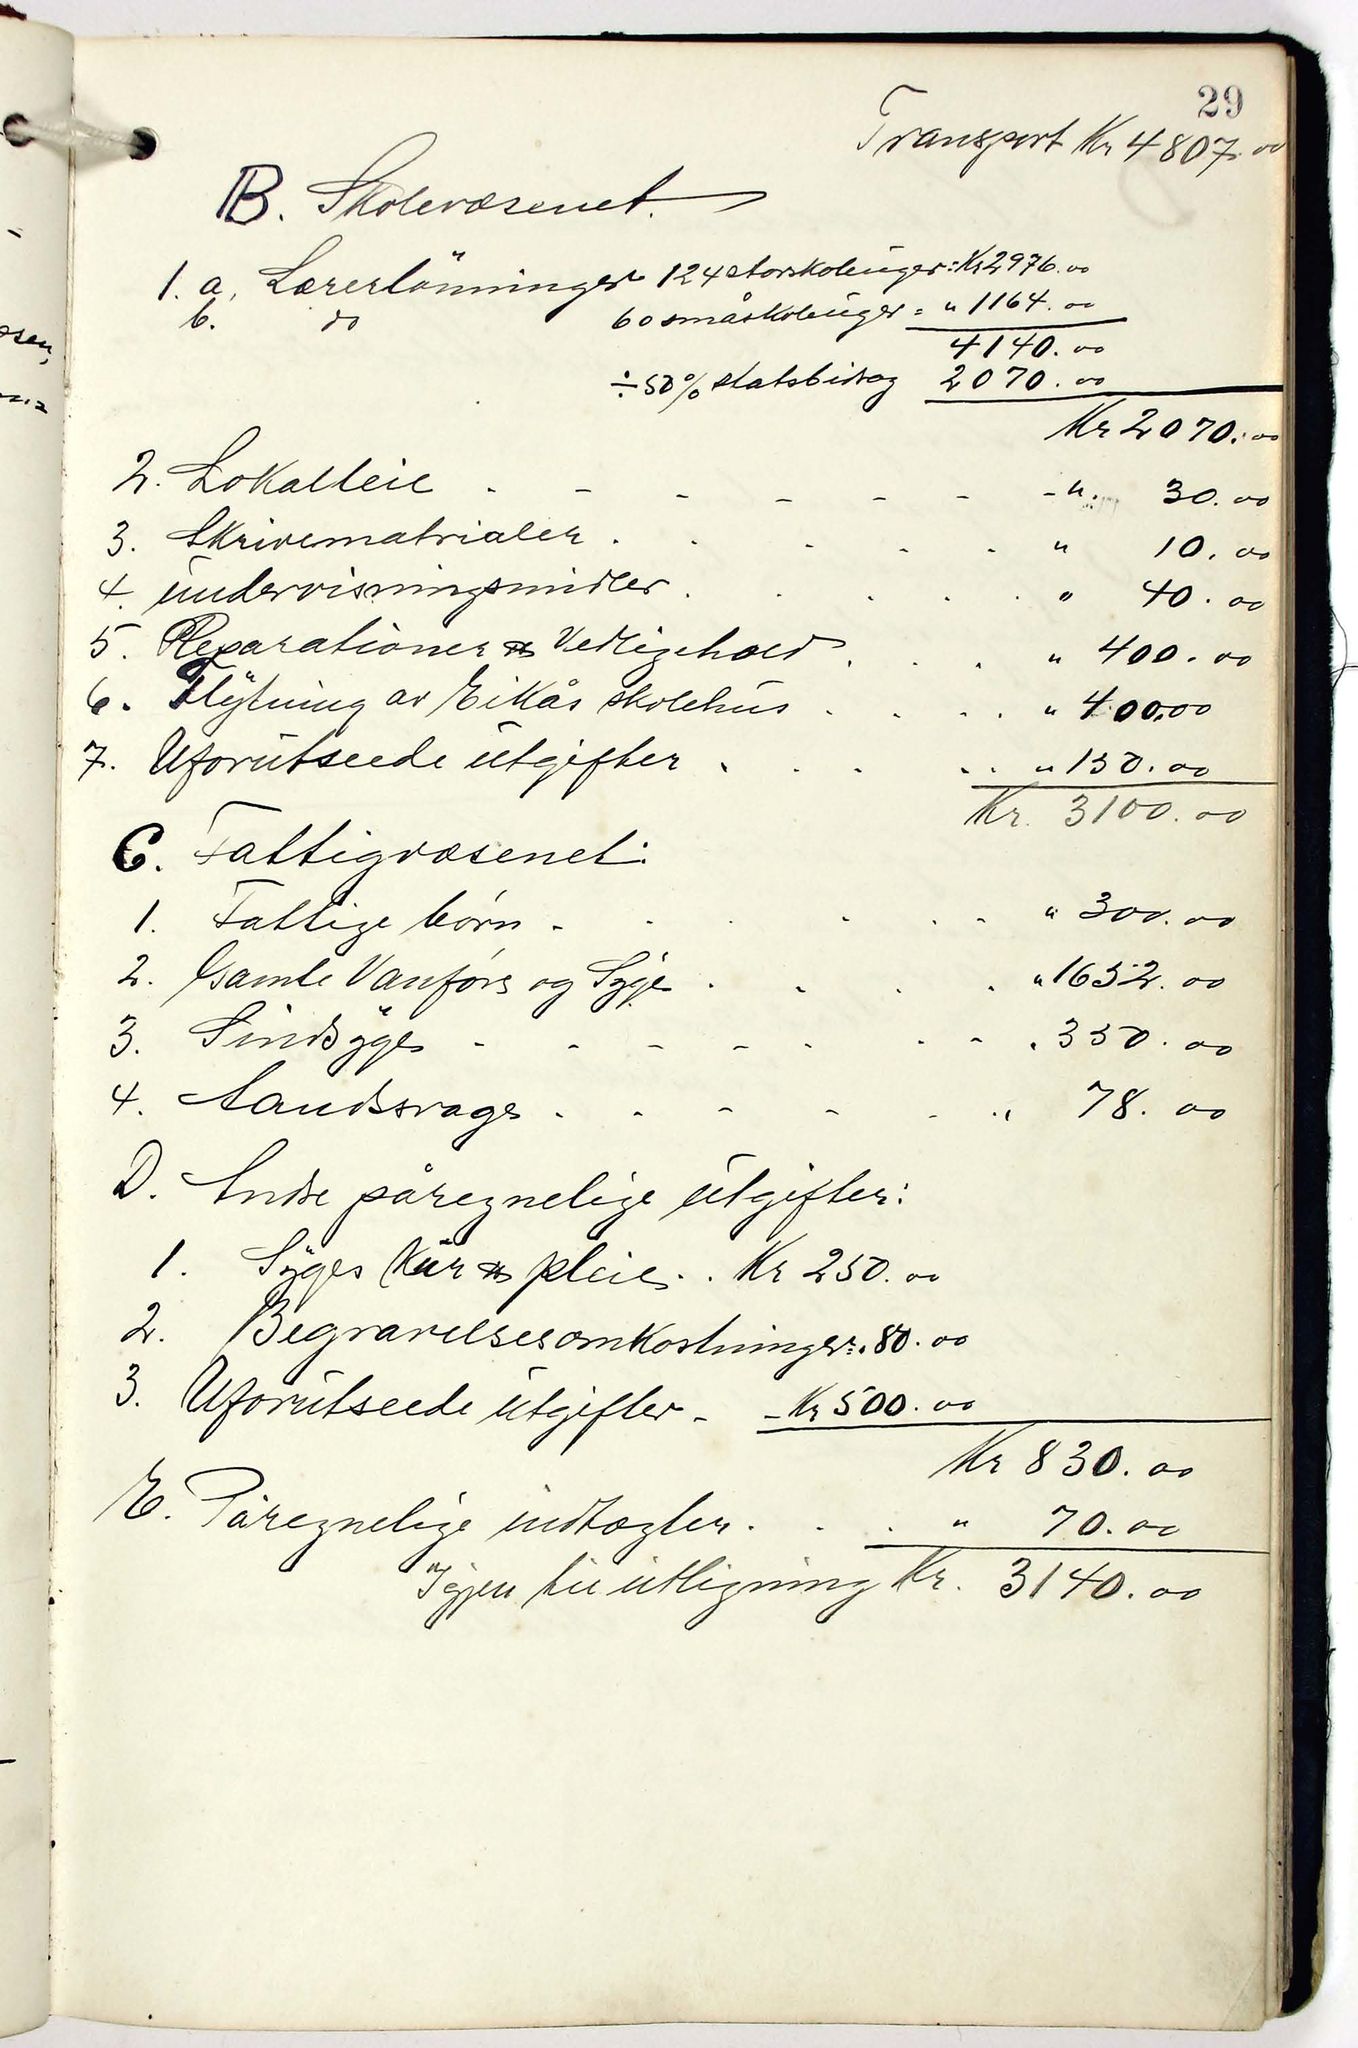 29
Transport Kr 4807.00
B. Skolevæsenet.
1. a. Lærerlönninger 124 storskoleuger: Kr 2976.00
b. do 60 småskoleuger = " 1164.00
4140.00
÷ 50% statsbidrag 2070.00
Kr 2070.00
2. Lokalleie - - - - - - - " 30.00
3. Skrivematrialer . . . . . " 10.00
4. undervisningsmidler . . . . . " 40.00
5. Reparationer & Vedligehold . . . " 400.00
6. Flytning av Eikås skolehus . . . . " 400.00
7. Uforutseede utgifter . . . . . " 150.00
Kr. 3100.00
C. Fattigvæsenet:
1. Fattige börn - - . . - - " 300.00
2. Gamle Vanføre og Syge . . . . " 1652.00
3. Sindsyge - - - - - - - " 350.00
4. Aandssvage . - - - - " 78.00
D. Andre påregnelige utgifter:
1. Syges Kur & pleie . . Kr 250.00
2. Begravelsesomkostninger: " 80.00
3. Uforutseede utgifter - - Kr 500.00
Kr 830.00
E. Påregnelige indtægter . . . " 70.00
Igjen til utligning Kr. 3140.00